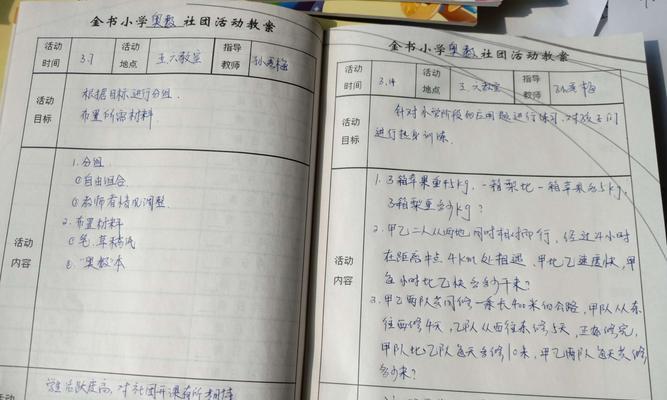 金书小学奥数社团活动教案
活动时间 3.7 活动地点 五.六教室 指导教师 孙秀梅
活动目标
根据目标进行分组.
布置所需材料.
活动内容
1.分组.
①自由组合.
②教师看情况调整.
2.布置材料
①笔、草稿纸
②"奥数"本
活动
学生活跃度高,对社团开课有所期待
金书小学奥数社团活动教案
活动时间 3.14 活动地点 五.六教室 指导教师 孙秀梅
活动目标
针对小学阶段的应用题进行练习,对孩子们
进行热身训练.
活动内容
1.3箱苹果重45kg,一箱梨比一箱苹果多5kg,
3箱梨重多少kg?
2.甲乙二人从两地同时相对而行,经过4小时
在距离中点4km处相遇,甲比乙速度快,甲
每小时比乙快多少千米?
3.甲乙两队共同修一条长400米的公路,甲队从东
往西修4天,乙队从西往东修5天,正好修完,
甲队比乙队每天多修10米,甲乙两队每天共修
多少米?
活动